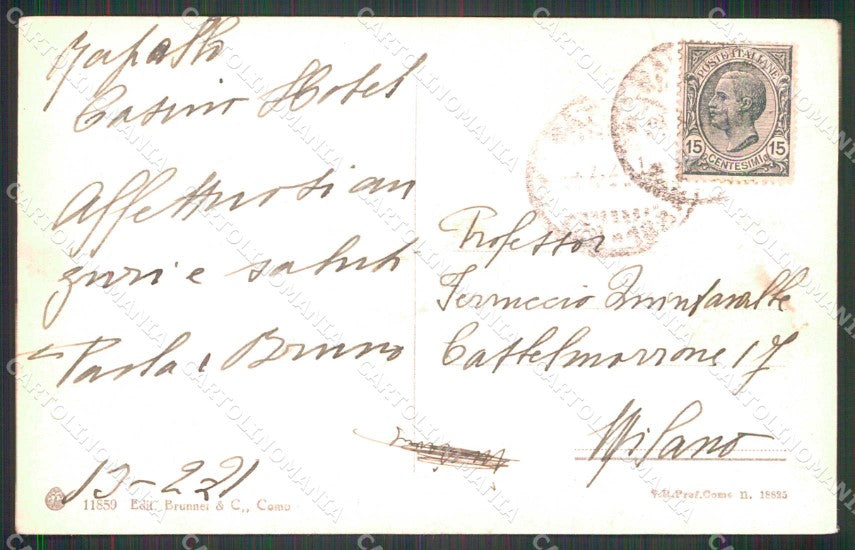 Rapallo
Casino Hotel
Affettuosi au
guri e saluti
Paola e Bruno
13-2 21
POSTE ITALIANE
15 15
CENTESIMI
Professor
Ferruccio
Castelmorrone 17
Milano
11859 Edit. Brunner & C., Como
V.R.Pref.Como n. 18825
CARTOLINOMANIA